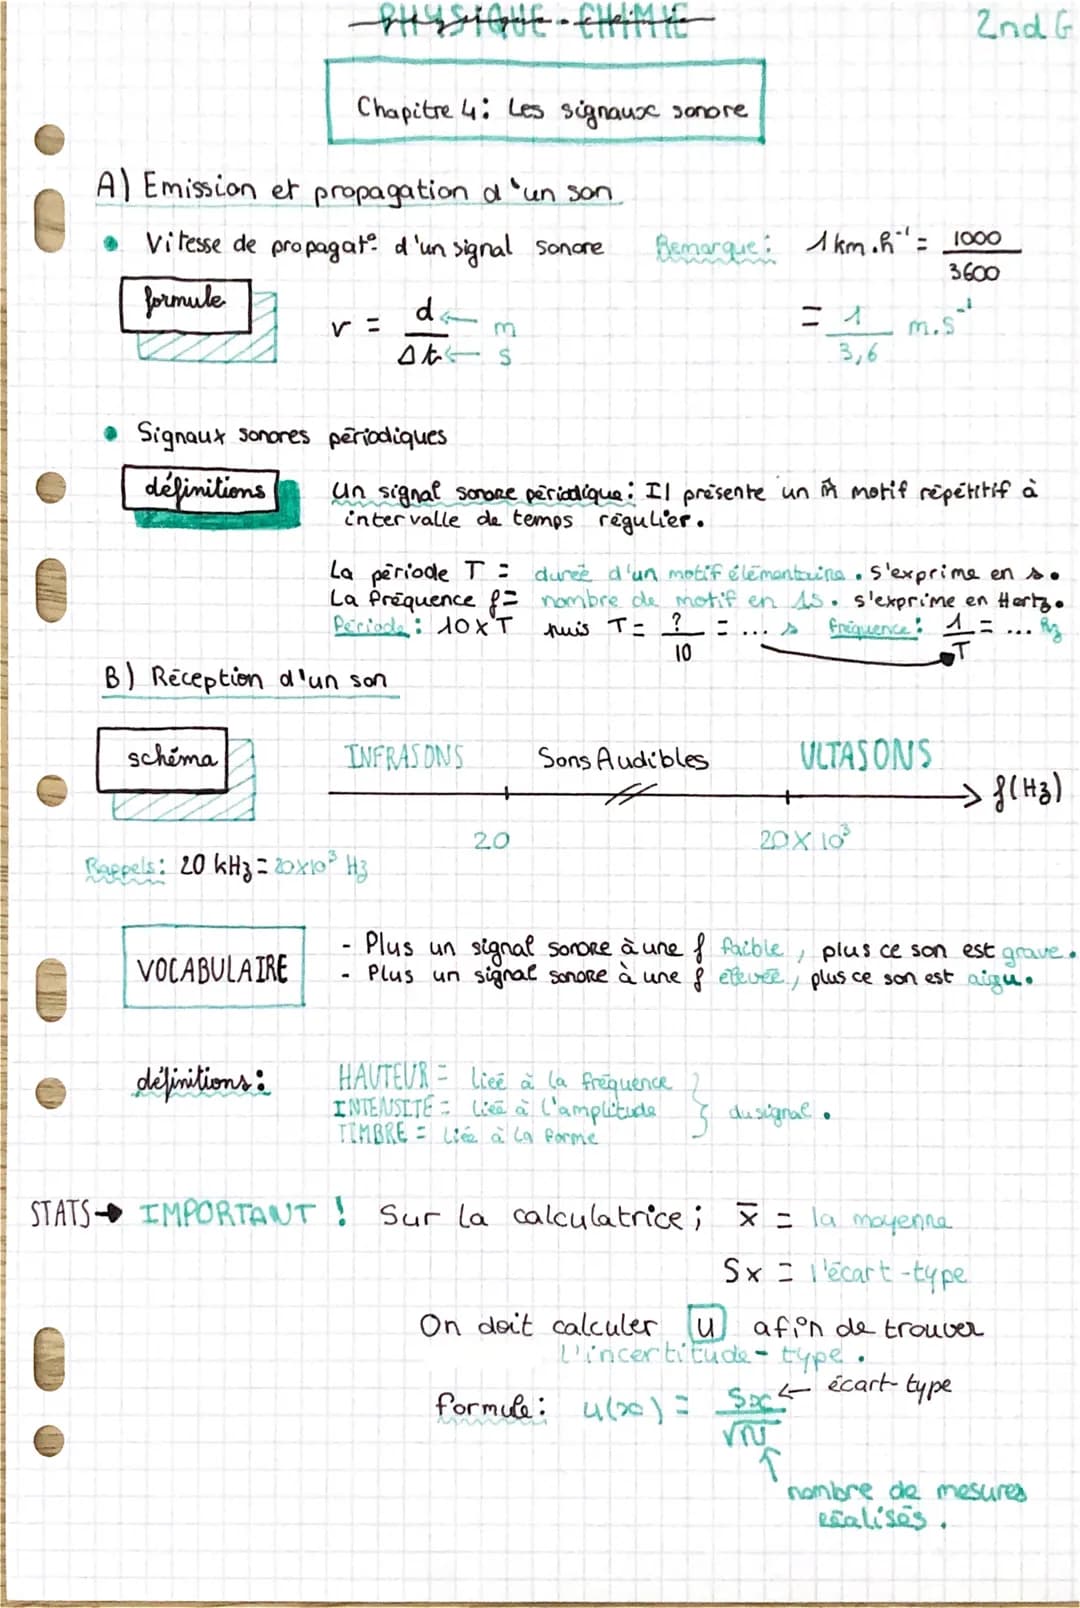 PHYSIQUE-CHIMIE
2nd G
Chapitre 4: Les signaux sonore
A) Emission et propagation d'un son
• Vitesse de propagat° d'un signal sonore
Remarque: 1 km.h⁻¹ = 1000/3600
= 1/3,6 m.s⁻¹
formule
v = d/Δt ← m ← s
• Signaux sonores périodiques
définitions
Un signal sonore périodique: Il présente un motif répétitif à
intervalle de temps régulier.
La période T = durée d'un motif élémentaire. s'exprime en s.
La fréquence f = nombre de motif en 1s. s'exprime en Hertz.
Période: 10xT puis T = ?/10 = ... s fréquence: 1/T = ... Hz
B) Réception d'un son
schéma
INFRASONS Sons Audibles ULTASONS
f(Hz)
20 20X10³
Rappels: 20 kHz = 20x10³ Hz
VOCABULAIRE
- Plus un signal sonore à une f faible, plus ce son est grave.
- Plus un signal sonore à une f élevée, plus ce son est aigu.
définitions:
HAUTEUR = liée à la fréquence
INTENSITÉ = liée à l'amplitude } du signal.
TIMBRE = liée à la forme
STATS → IMPORTANT ! Sur la calculatrice; x̄ = la moyenne
Sx = l'écart-type
On doit calculer u afin de trouver
l'incertitude-type.
formule: u(x) = Sx/√N ← écart-type
↑
nombre de mesures
réalisés.